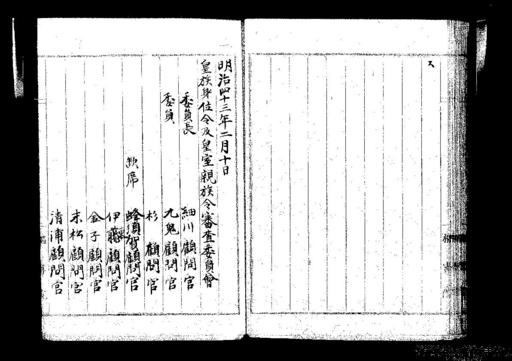 明治四十三年二月十日
皇族身位令及皇室親族令審査委員會
委員長 細川顧問官
委員 九鬼顧問官
杉顧問官
欠席 蜂須賀顧問官
伊藤顧問官
金子顧問官
末松顧問官
清浦顧問官